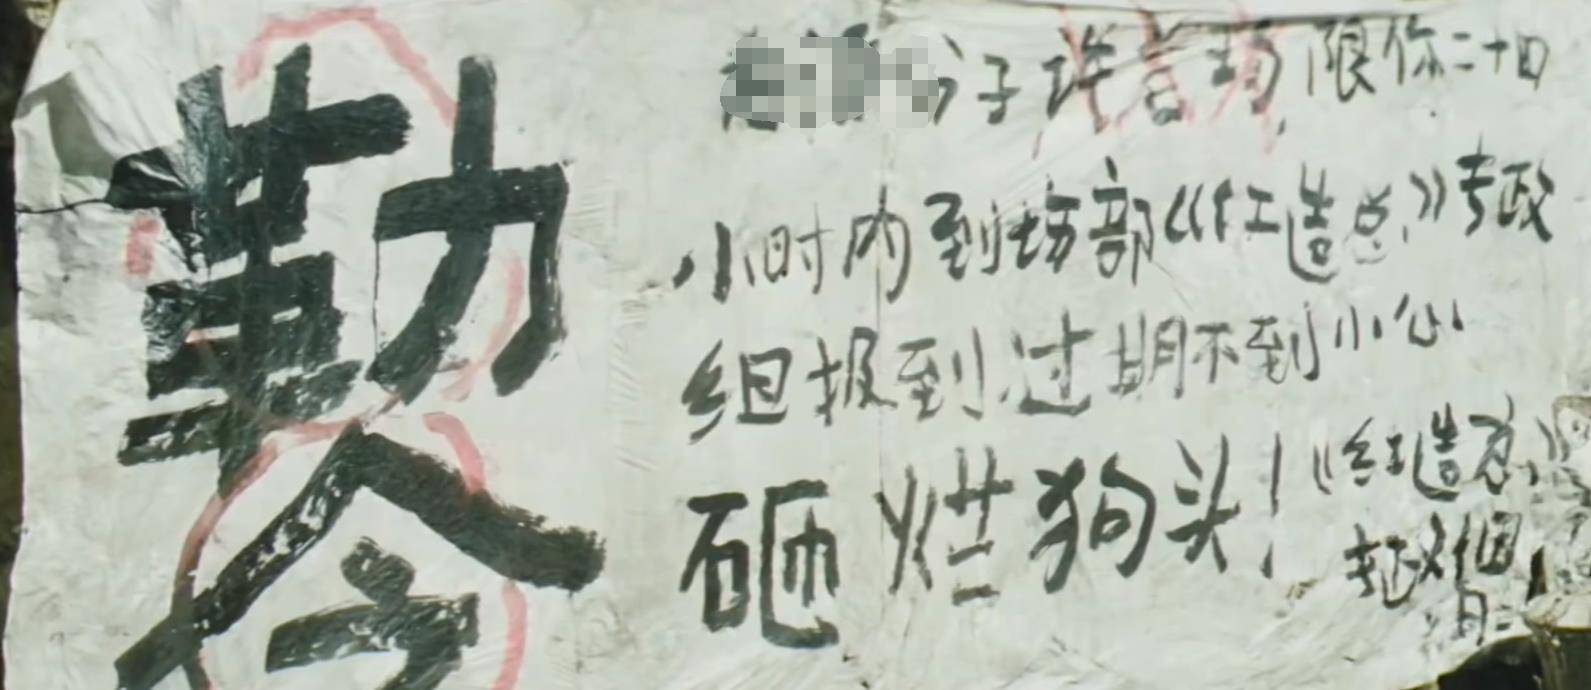 勒令
分子许言均限你二十四
小时内到场部《红造总》专政
组报到.过期不到小心
砸烂狗头！
《红造总》
专政组